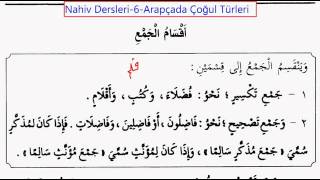 Nahiv Dersleri-6-Arapçada Çoğul Türleri
أَقْسَامُ الْجَمْعِ
وَيَنْقَسِمُ الْجَمْعُ إِلَى قِسْمَيْنِ :
قلم
١ – جَمْعُ تَكْسِيرٍ ؛ نَحْوُ : فُضَلَاءَ ، وَكُتُبٍ ، وَأَقْلَامٍ .
٢ – جَمْعُ تَصْحِيحٍ ؛ نَحْوُ : فَاضِلُونَ ، أَوْ فَاضِلِينَ ، وَفَاضِلَاتٍ . فَإِذَا كَانَ لِمُذَكَّرٍ
سُمِّيَ « جَمْعَ مُذَكَّرٍ سَالِمًا » ، وَإِذَا كَانَ لِمُؤَنَّثٍ سُمِّيَ « جَمْعَ مُؤَنَّثٍ سَالِمًا » .